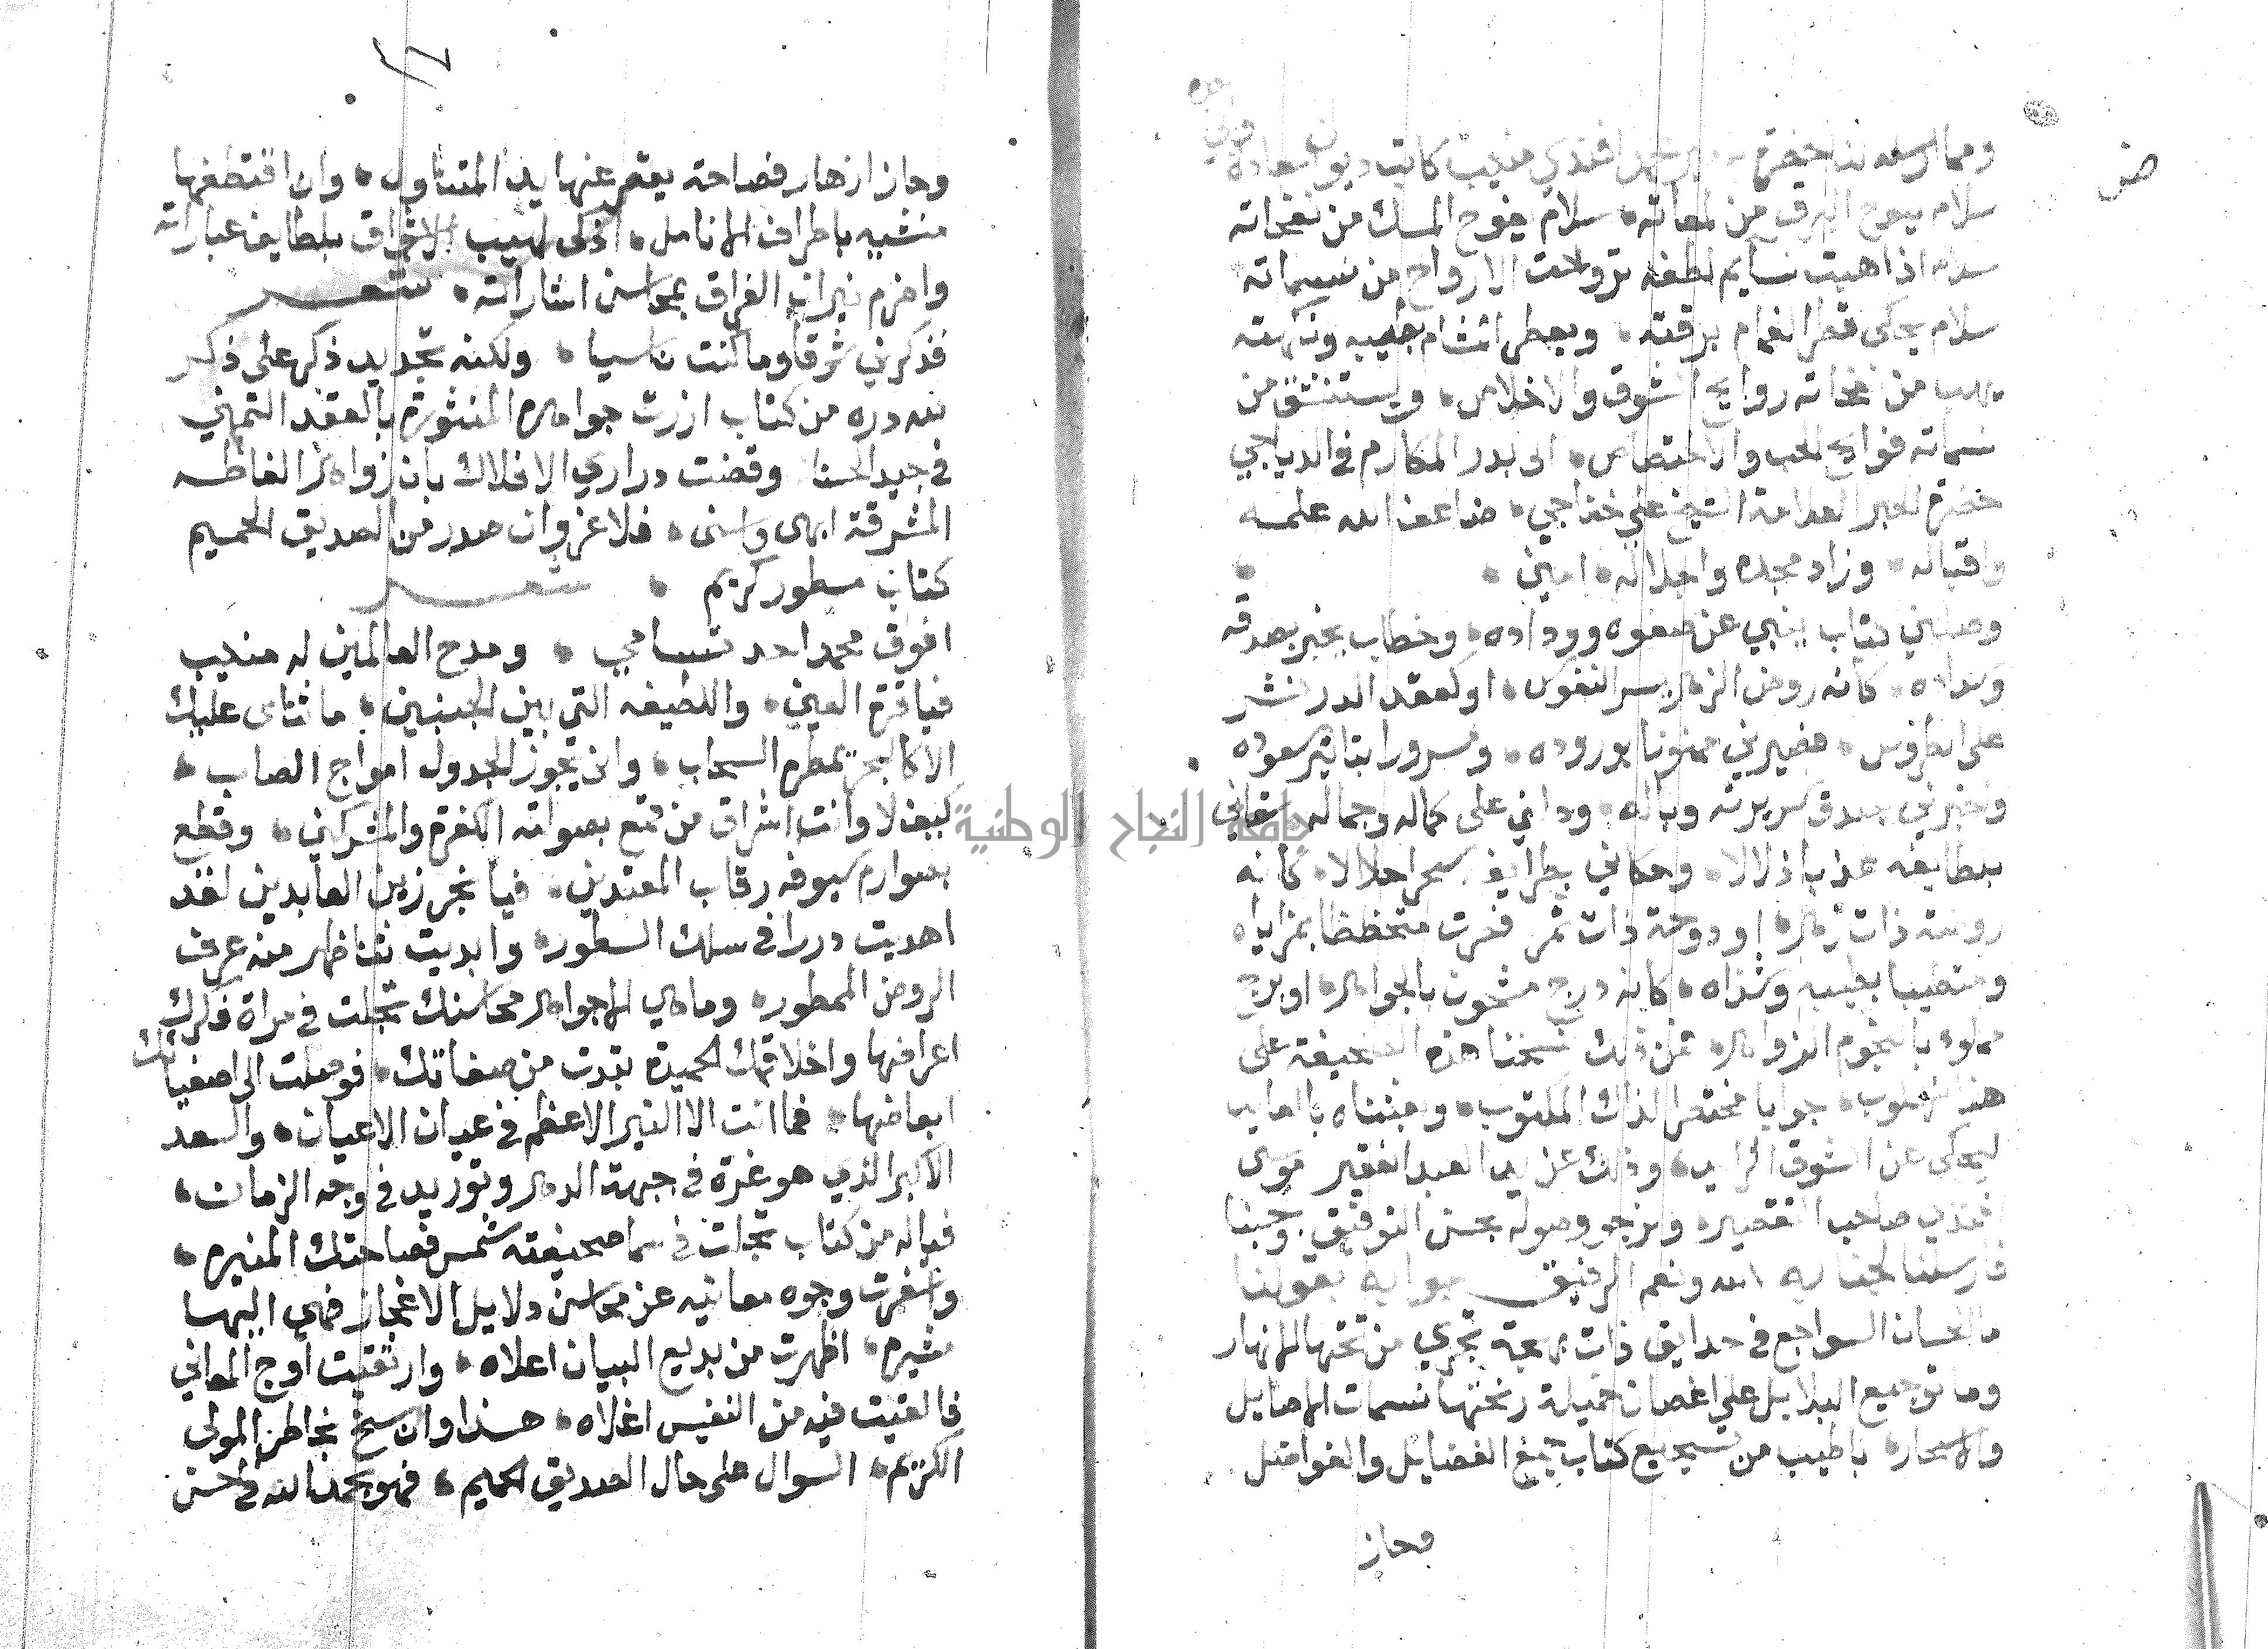 ص
ومما ارسله لنا حضرة محمد افندي منيب كاتب ديوان سعادة
سلام يلوح البرق من لمعاته • سلام يفوح المسك من نفحاته
سلام اذا هبت نسايم لطفه تروحت الارواح من نسيماته
سلام يحكى قطر الغمام برقته • ويعطر المشام بطيبه ونكهته
يهب من نفحاته روايح الشوق والاخلاص • ويستنشق من
نسماته فوايح الحب والاختصاص • الى بدر المكارم في الدياجي
حضرة الحبر العلامة الشيخ علي خفاجي • ضاعف الله علمه
واقباله • وزاد مجده واجلاله • امين •
وصلني كتاب ينبي عن صفوه ووداده • وخطاب يخبر بصدقه
وسداده • كانه روض الزهر يسر النفوس • او كعقد الدر نشر
على الطروس • فصيرني ممنونا بوروده • ومسرورا بتاثير سعوده
واخبرني بصدق سريرته وباله • ودلني على كماله وجماله • سقاني
بلطايفه عذبا زلالا • وحكاني بطرايف سحرا حلالا • كانه
روضة ذات زهر • او دوحة ذات ثمر فخرت متحظظا بمزاياه
ومتطيبا بطيبه وشذاه • كانه درج مشحون بالجواهر • او برج
مملو بالنجوم الزواهر • فمن ذلك نسخنا هذه الصحيفة على
هذا الاسلوب • جوابا مختصرا لذاك المكتوب • وبعثناه
ليحكى عن الشوق الزايد • وذلك عن يد العبد الفقير موسى
افندي صاحب التقصير • ونرجو وصوله بحسن التوفيق • وحسبنا
الله ونعم الرفيق فارسلنا لجنابه جوابه بقولنا
ما الحسان السواجع في حدايق ذات بهجة تجري من تحتها الانهار
وما ترجيع البلابل على اغصان خميلة رنحتها نسمات الاصايل
والاسحار • باطيب من تسجيع كتاب جمع الفضايل والفواضل
وحاز
وحاز ازهار فصاحة يقصر عنها يد المتناول • وان اقتطفها
منشيه باطراف الانامل • اذكى لهيب الاشواق بلطايف عباراته
واضرم نيران الفراق بمحاسن اشاراته • شعر
فذكرني شوقا وما كنت ناسيا • ولكنه تجديد ذكر على ذكر
لله دره من كتاب ازرت جواهره المنثورة بالعقد الثمين
في جيد الحسنا وقضت دراري الافلاك بان زواهر الفاظه
المشرقة ابهى واسنى • فلا غرو ان صدر من الصديق الحميم
كتاب مسطور كريم • شعر
افوق محمد احد تسامي • ومدح العالمين له منيب
فيا قرة العين • واللطيفه التي بين الجنبين • ما ثناى عليك
الا كالبحر تمطره السحاب • وان تجوز الجدول امواج العباب •
كيف لا وانت اشراق من قمع بصولته الكفرة والمشركين • وقطع
بصوارم سيوفه رقاب المعتدين • فيا نجر زين العابدين لقد
اهديت دررا في سلك السطور • وابديت نثنا ظهر منه عرف
الروض الممطور • وما هي الا جواهر محاسنك تجلت في مراة فكرك
اعراضها واخلاقك الحميدة تبدت من صفاتك • فوصلت الى اصفيائك
ابعاضها • فما انت الا النير الاعظم في عيان الاعيان • والسعد
الاكبر الذي هو غرة في جبهة الدهر وتوريد في وجه الزمان •
فياله من كتاب تجلت في سما صحيفته شمس فصاحتك المنيره •
واسفرت وجوه معانيه عن محاسن دلايل الاعجاز فهي اليها
مشيره • اظهرت من بديع البيان اعلاه • وارتقيت اوج المعاني
فالقيت فيه من النفيس اغلاه • هذا وان سنح بخاطر المولى
الكريم • السوال على حال الصديق الحميم • فهو بحمد الله في احسن
جامعة النجاح الوطنية